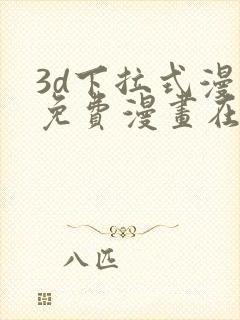 3d下拉式漫
免費漫畫在
八匹